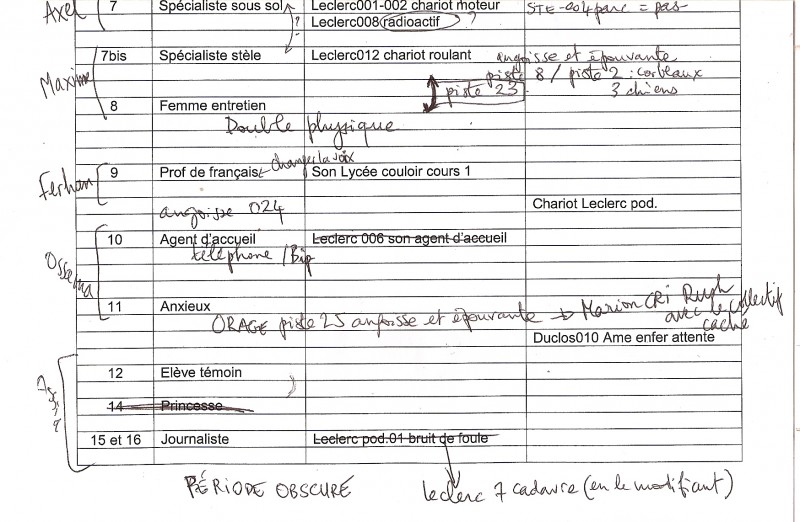 Axel 7 Spécialiste sous sol Leclerc001-002 chariot moteur STE-004 parc = pas
? Leclerc008 radioactif ?
Maxime 7bis Spécialiste stèle Leclerc012 chariot roulant angoisse et épouvante
piste 8 / piste 2 : corbeaux
piste 23 3 chiens
8 Femme entretien
Double physique
changer la voix
Ferhan 9 Prof de français Son Lycée couloir cours 1
Chariot Leclerc pod.
angoisse 024
10 Agent d'accueil Leclerc 006 son agent d'accueil
Ossema téléphone / Bip
11 Anxieux
ORAGE piste 25 angoisse et épouvante → Marion CRI Rush
avec le collectif
caché
Duclos010 Ame enfer attente
12 Elève témoin
14 Princesse
15 et 16 Journaliste Leclerc pod.01 bruit de foule
PÉRIODE OBSCURE leclerc 7 cadavre (en le modifiant)